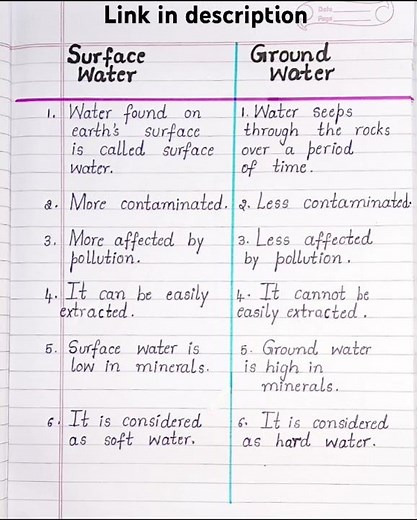 Link in description
Date
Page
Surface Water
Ground Water
1. Water found on
earth's surface
is called surface
water.
2. More contaminated.
3. More affected by
pollution.
4. It can be easily
extracted.
5. Surface water is
low in minerals.
6. It is considered
as soft water.
1. Water seeps
through the rocks
over a period
of time.
2. Less contaminated.
3. Less affected
by pollution.
4. It cannot be
easily extracted.
5. Ground water
is high in
minerals.
6. It is considered
as hard water.